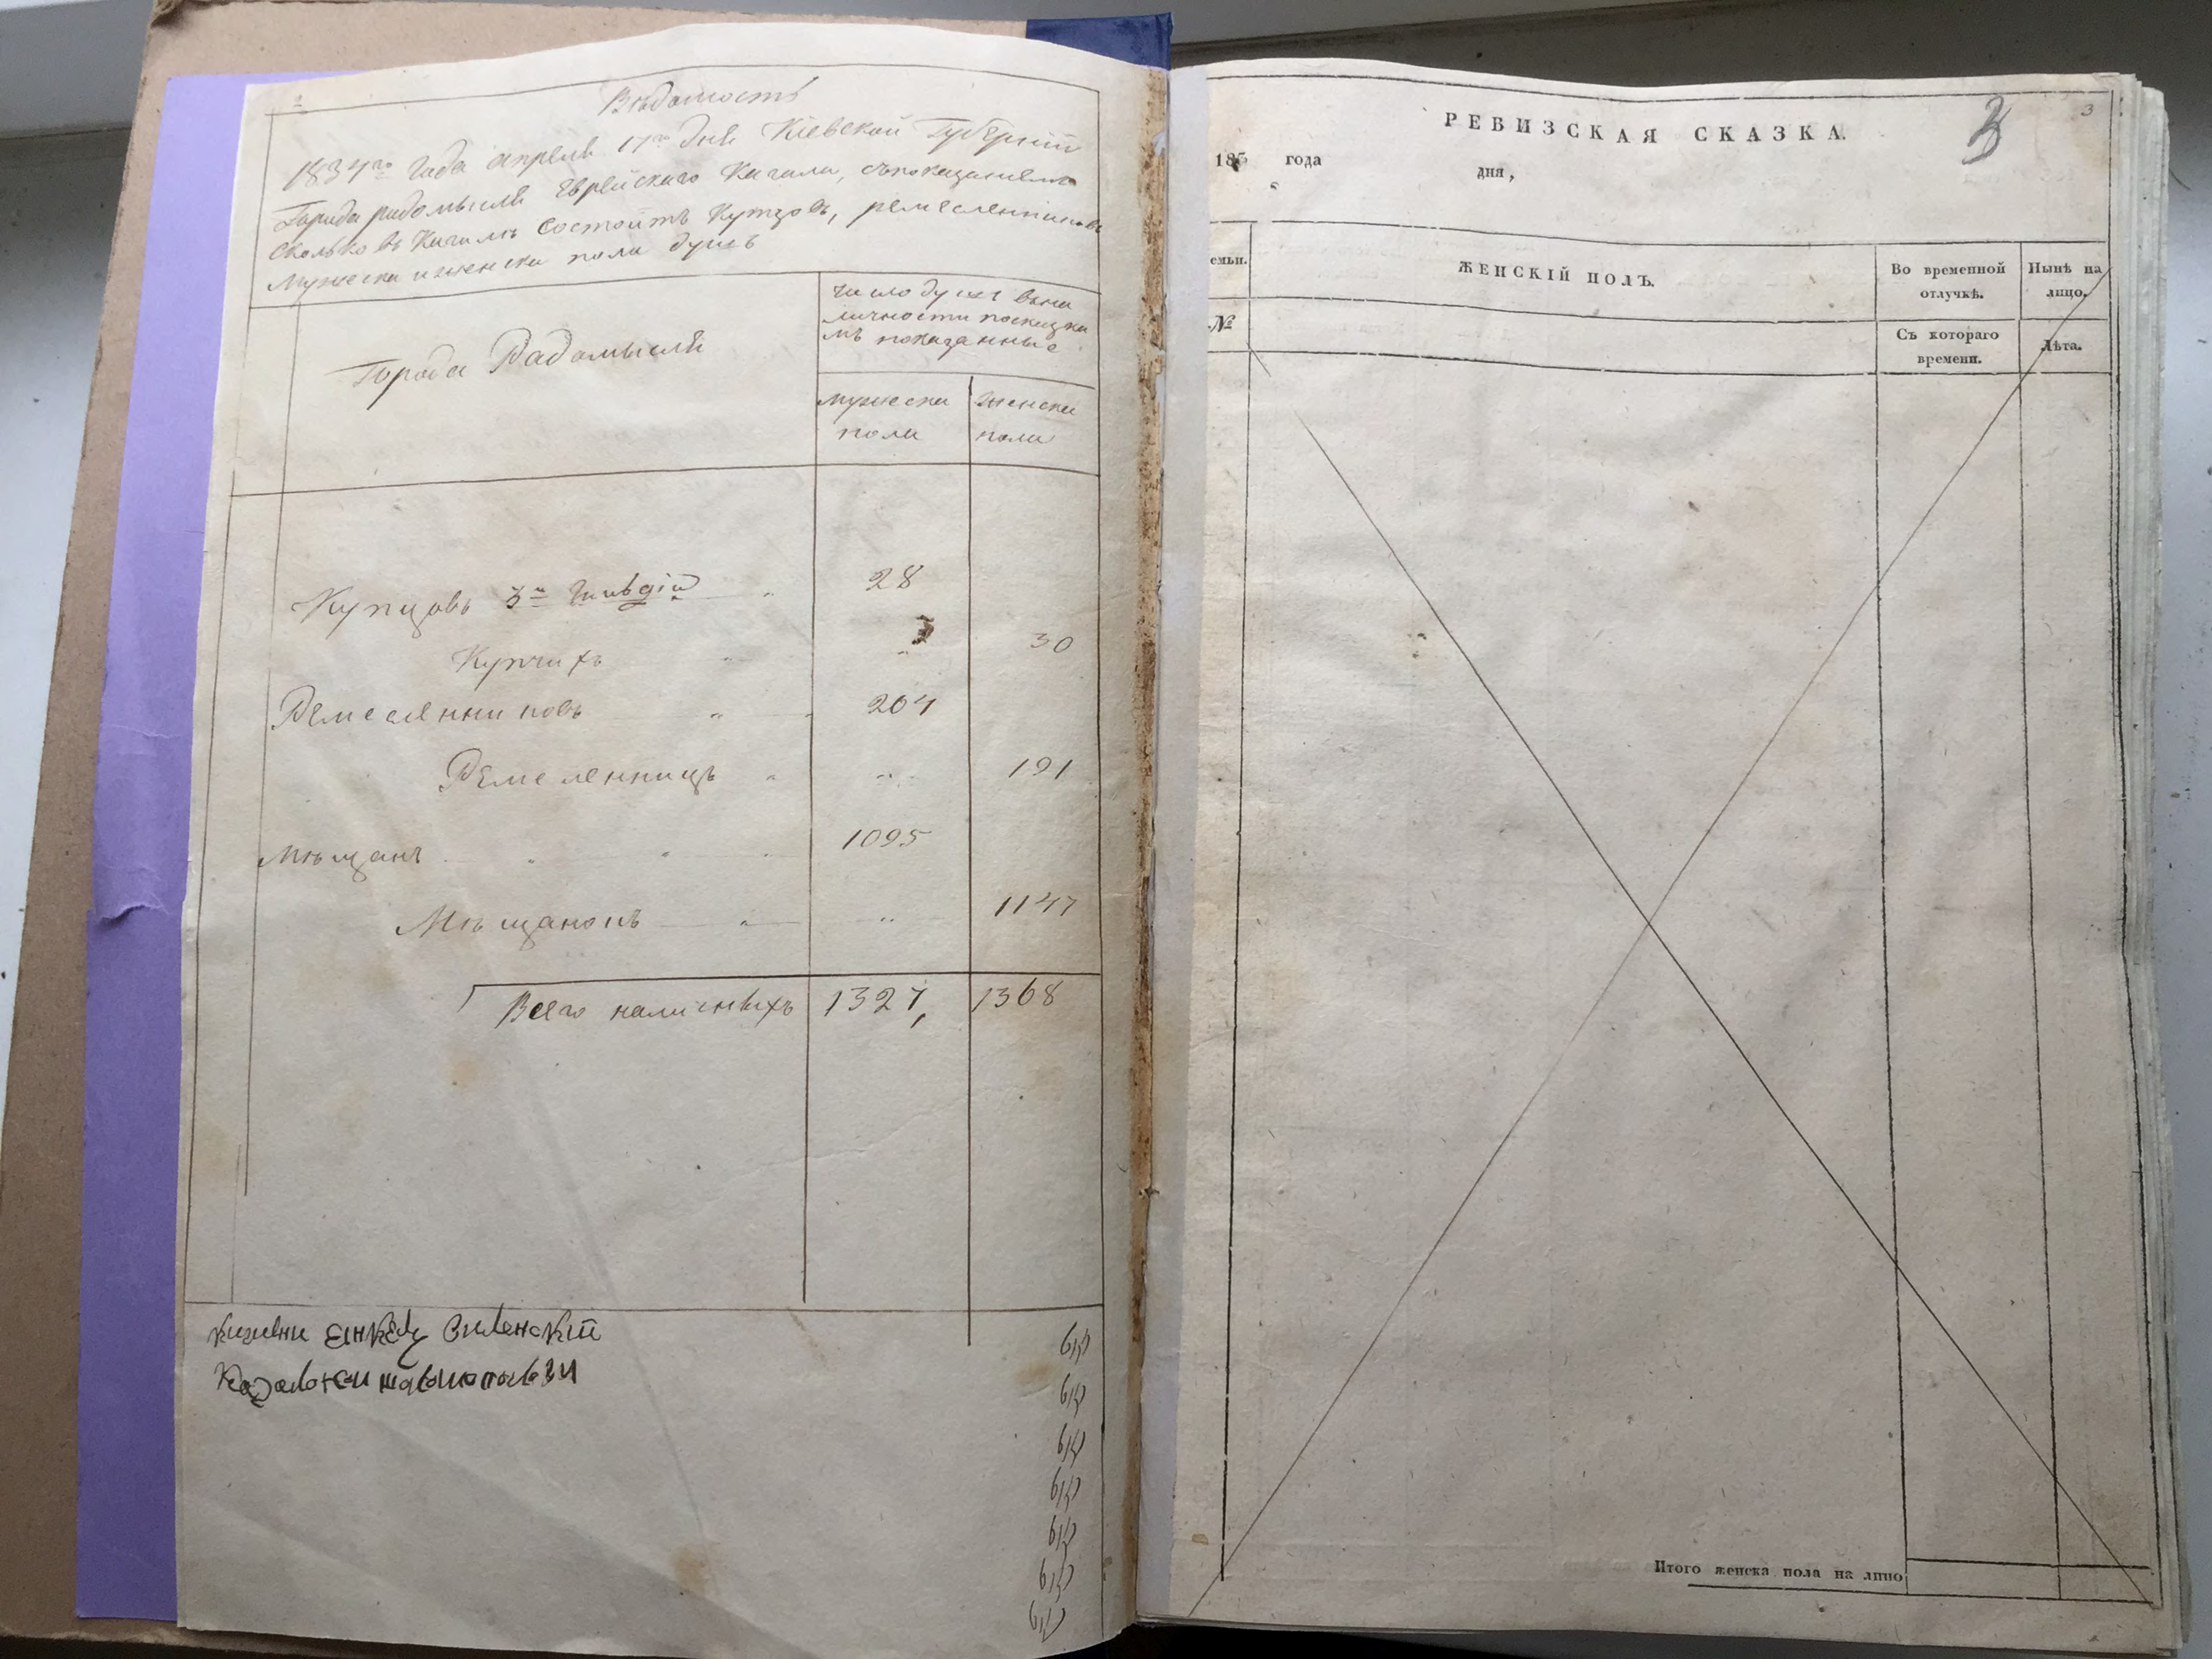 Вѣдомость
1834го года апреля 17го дня Кіевской Губерніи
Города радомысля Еврейскаго Кагала, съ показаніемъ
сколько въ Кагалѣ состоитъ Купцовъ, ремесленниковъ
Мужеска и женска пола душъ
Города Радомысля
число душъ вьна
личности поскаска
мъ показанные
мужеска пола
женска пола
Купцовъ 3й гильдіи " 28
Купчихъ " " 30
Ремесленниковъ " " 204
Ремесленницъ " " 191
Мѣщанъ " " " 1095
Мѣщанокъ " " 1147
Всего наличныхъ 1327, 1368
РЕВИЗСКАЯ СКАЗКА.
3
3
183 года дня,
емьи.
ЖЕНСКІЙ ПОЛЪ.
Во временной отлучкѣ.
Нынѣ на лицо.
№
Съ котораго времени.
Лѣта.
Итого женска пола на лицо